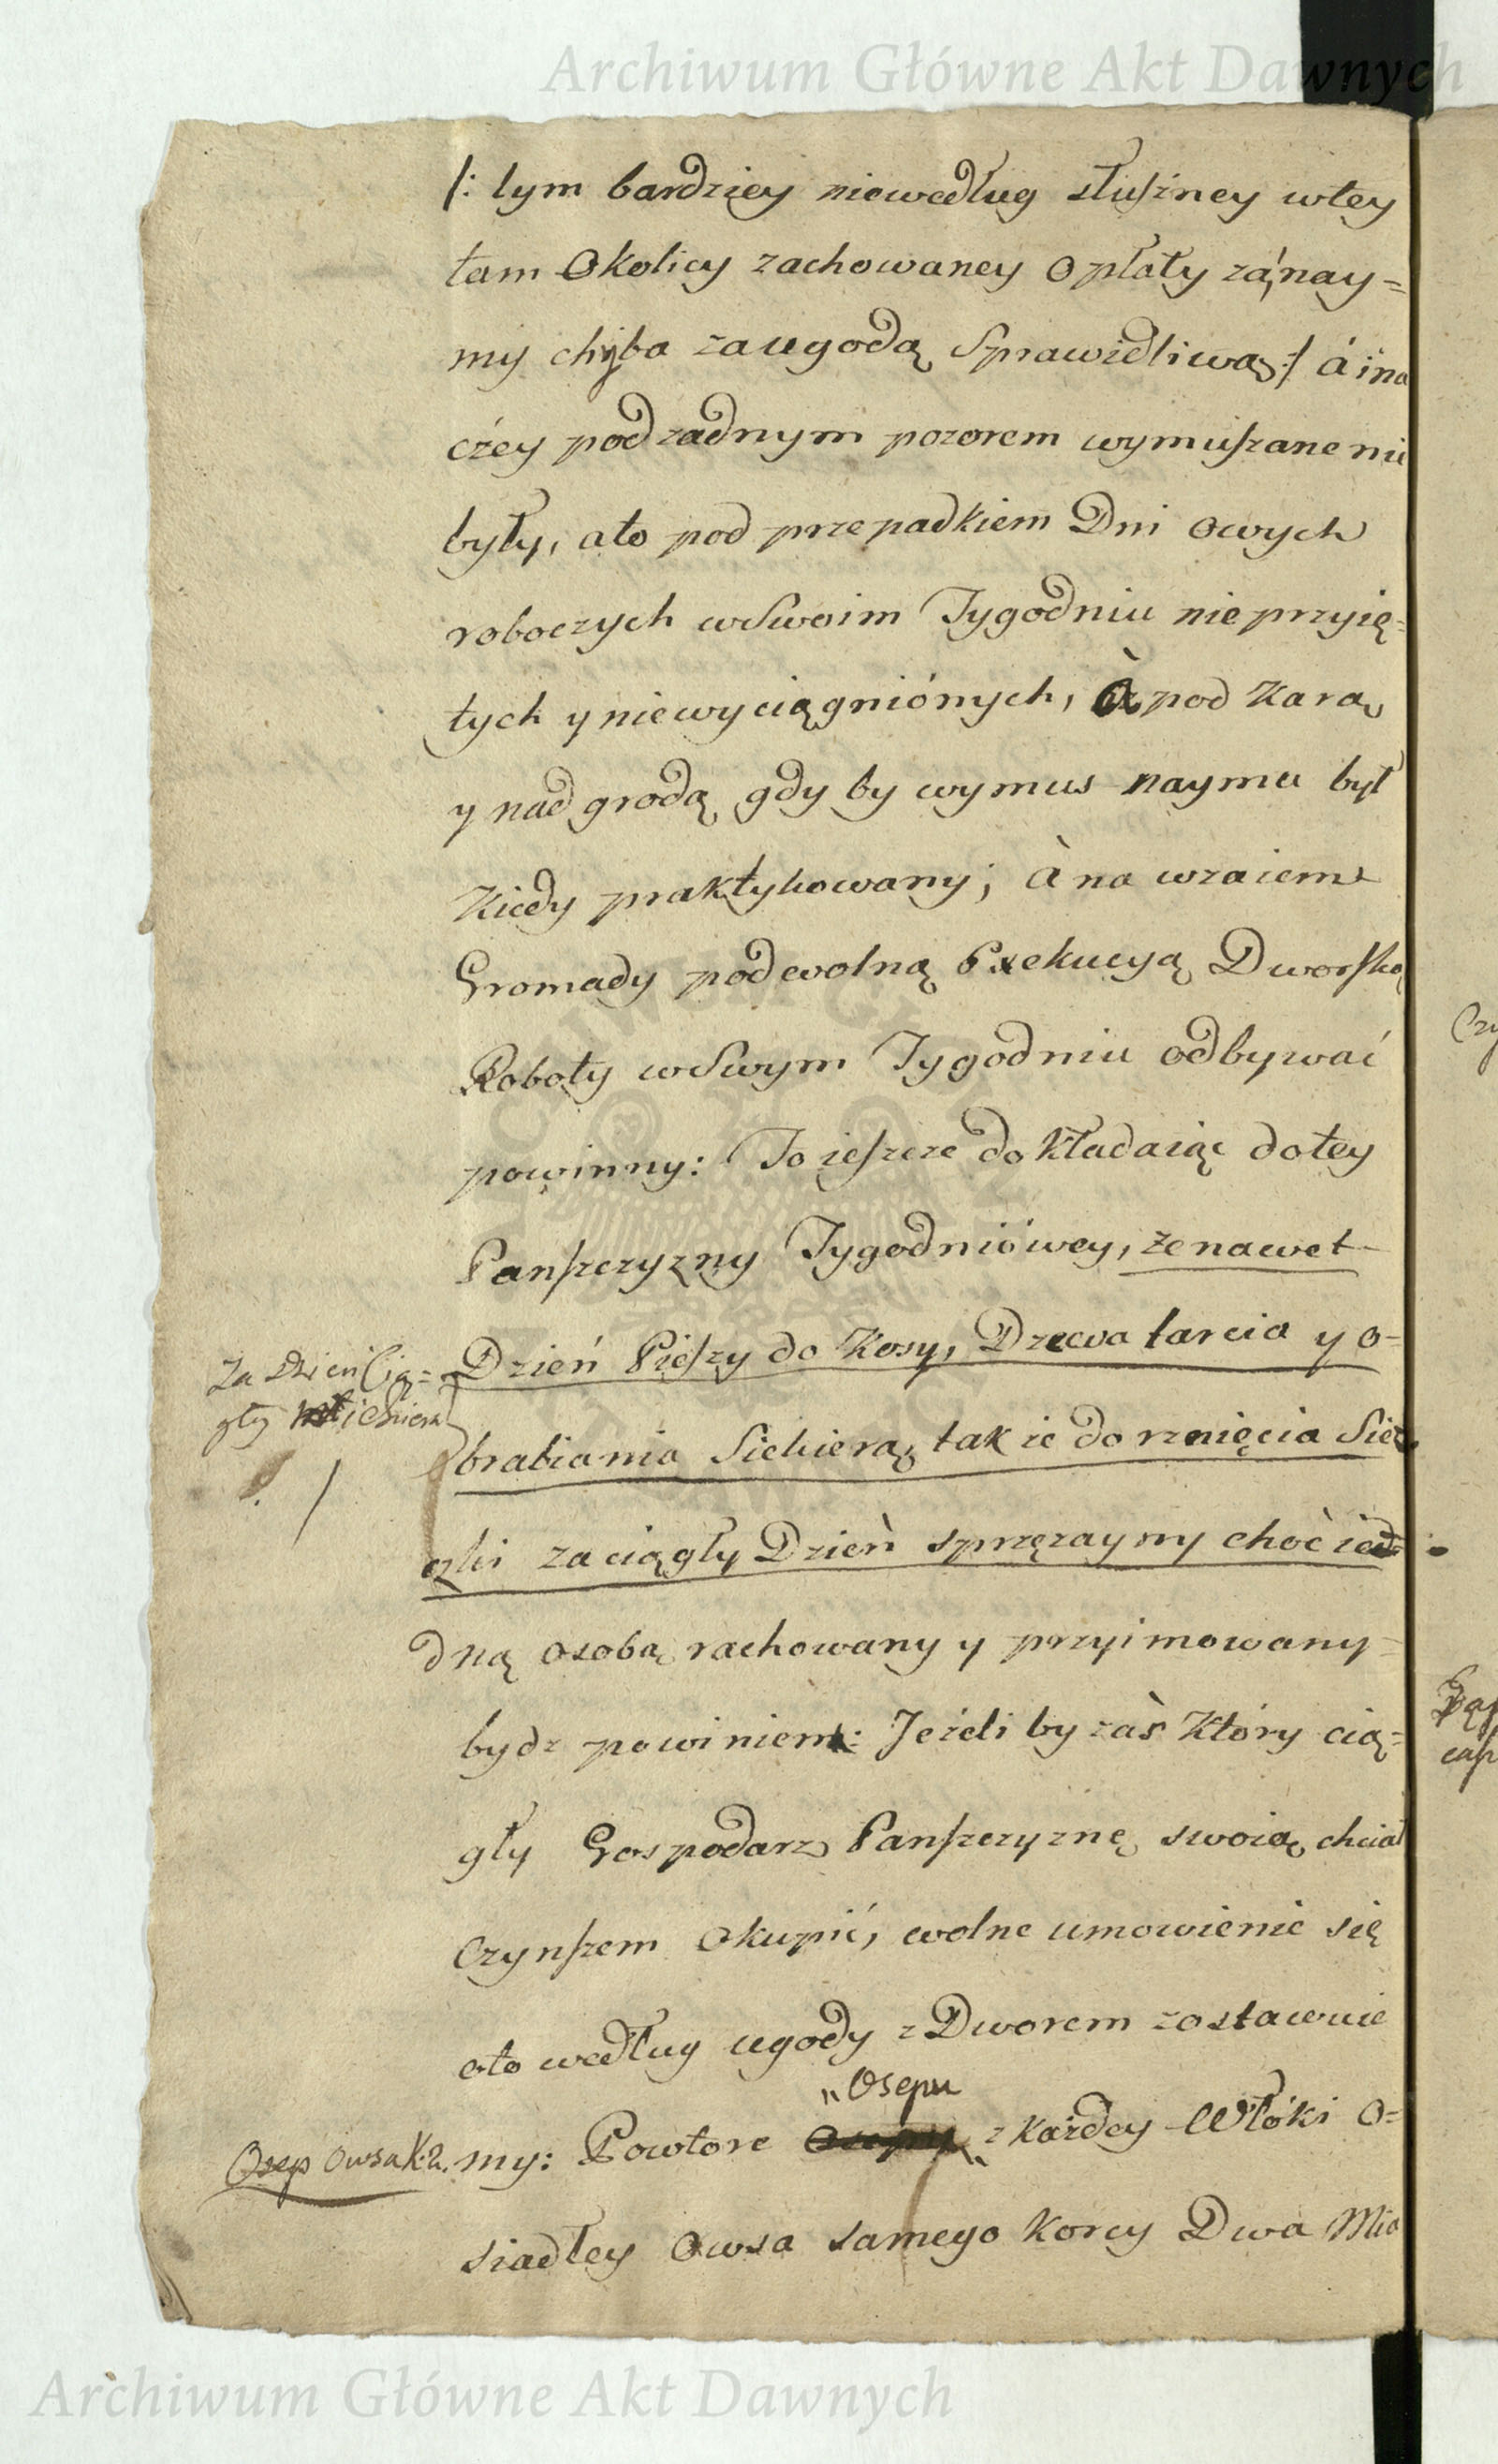 Archiwum Główne Akt Dawnych
/: tym bardziey niewedług słuszney wtey
tam Okolicy zachowaney Opłaty zá nay=
my chyba zaugodą Sprawiedliwą :/ á ina
czey pod zadnym pozorem wymuszane nie
były, ato pod przepadkiem Dni owych
roboczych wSwoim Tygodniu nieprzyię=
tych y niewyciągniónych, à pod Karą
y nadgrodą gdyby wymus naymu był
Kiedy praktykowany; à na wzaiem
Gromady podwolną Exekucyą Dworską
Roboty wSwym Tygodniu odbywać
powinny: To ieszcze dokładaiąc dotey
Panszczyzny Tygodniówey, ze nawet
Dzień Pieszy do Kosy, Drzewa tarcia y o=
brabiania Siekierą, takze do rznięcia Siecz
czki za ciągły Dzień sprzęzayny choć ied=
dną osobą rachowany y przyimowany
bydz powinien: Jeżeli by zaś Który cią=
gły Gospodarz Panszczyznę swoią chciał
Czynszem Okupić, wolne umowienie się
oto według ugody z Dworem zostawuie
Osepu
my: Powtore z Każdey Włóki O=
siadłey Owsa samego Korcy Dwa Mia
Za Dzień Cią=
gły
Osep Owsa K. 2.
Archiwum Główne Akt Dawnych